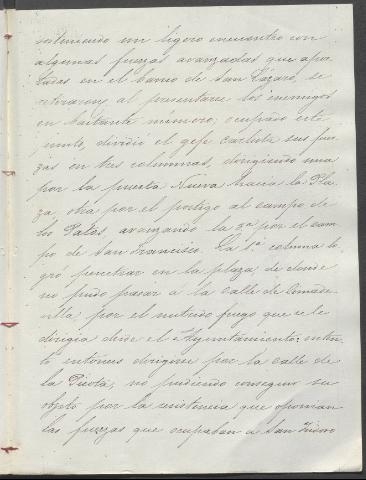 sosteniendo un ligero encuentro con
algunas fuerzas avanzadas que apos-
tadas en el barrio de San Lázaro, se
retiraron al presentarse los enemigos
en bastante número; ocupado este
punto, dividió el gefe carlista sus fuer-
zas en tres columnas, dirigiendo una
por la puerta Nueva hacia la Pla-
za, otra por el postigo al campo de
los Patos, avanzando la 3ª por el cam-
po de San Francisco. La 1ª columna lo-
gró penetrar en la plaza, de donde
no pudo pasar á la calle de Cimade-
villa por el nutrido fuego que se le
dirigia desde el Ayuntamiento: inten-
tó entónces dirigirse por la calle de
la Picota, no pudiendo conseguir su
objeto por la resistencia que oponian
las fuerzas que ocupaban á San Isidoro